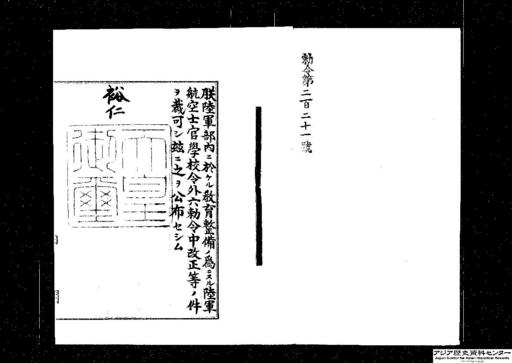 勅令第二百二十一號
朕陸軍部內ニ於ケル教育整備ノ爲ニスル陸軍
航空士官學校令外六勅令中改正等ノ件
ヲ裁可シ玆ニ之ヲ公布セシム
裕仁
天皇
御璽
アジア歴史資料センター
Japan Center for Asian Historical Records